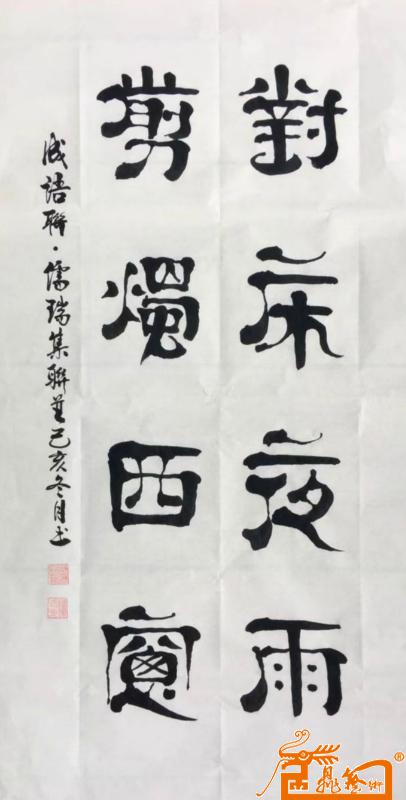 對床夜雨
剪燭西窗
成語聯·儒瑞集聯並己亥冬月書